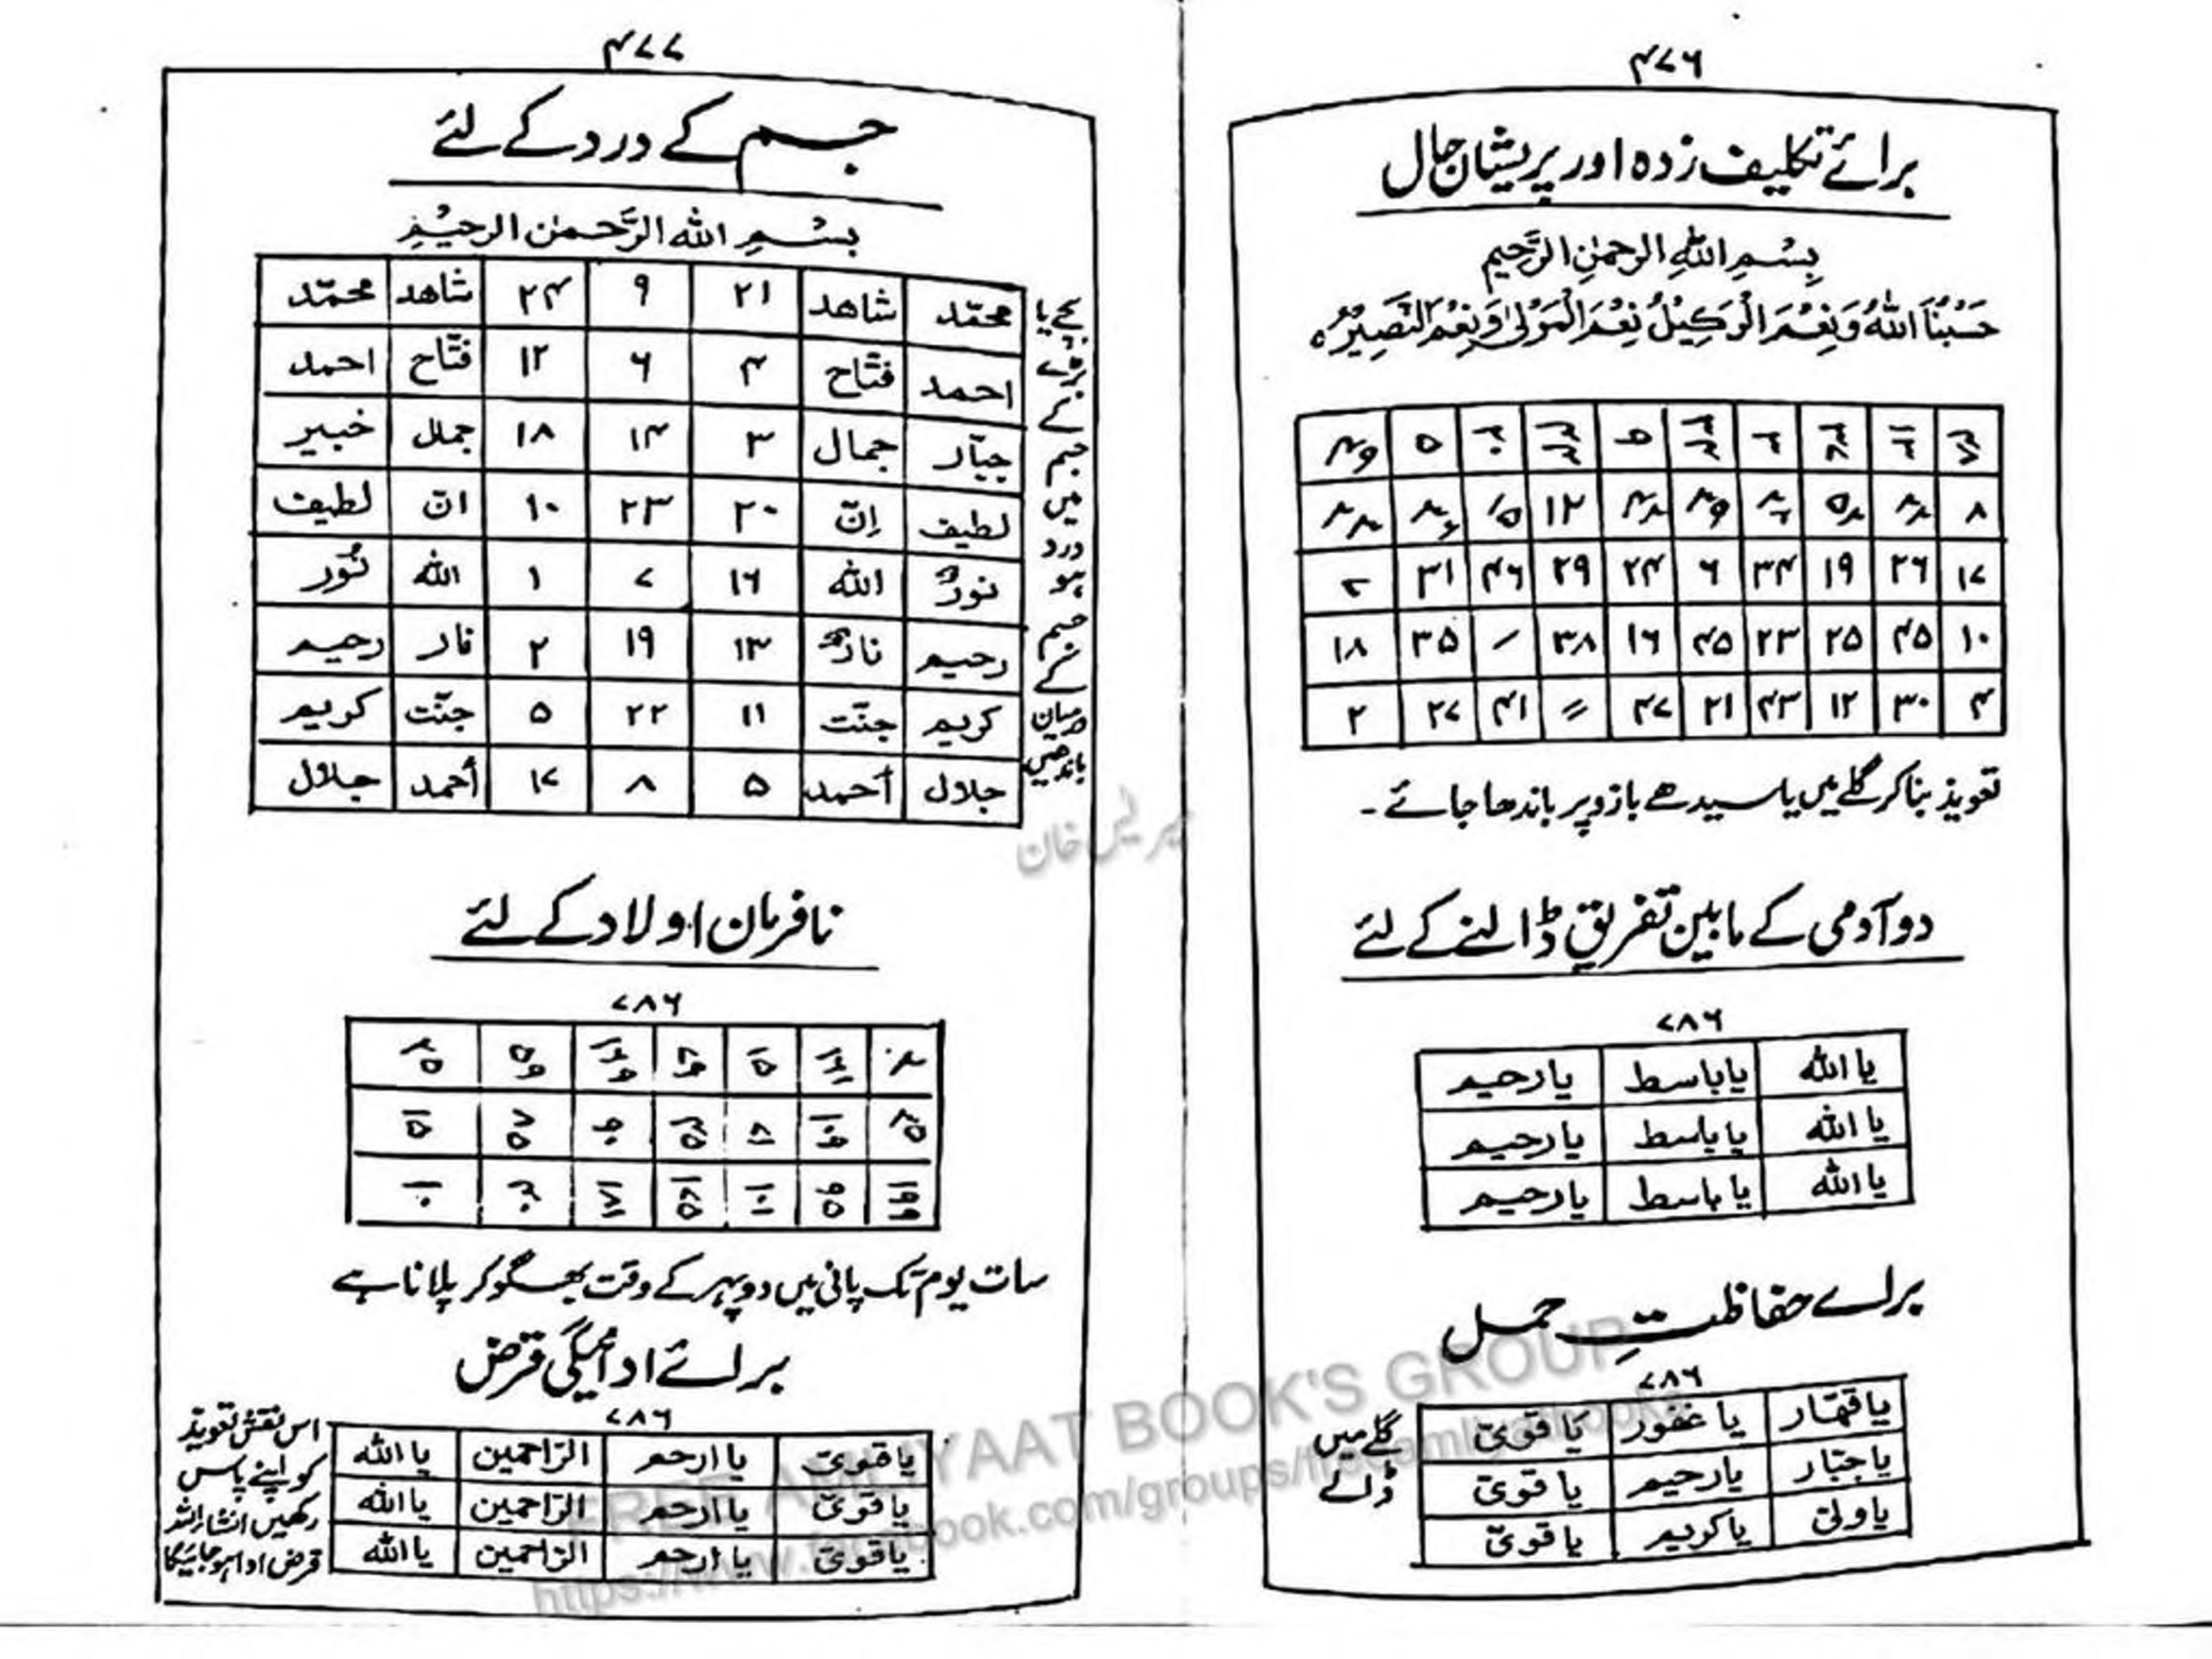 ۴۷۶
برائے تکلیف زدہ اور پریشان حال
بِسْمِ اللّٰهِ الرحمٰنِ الرَّحِیمِ
حَسْبُنَا اللّٰهُ وَنِعْمَ الْوَكِيْلُ نِعْمَ الْمَوْلٰى وَنِعْمَ النَّصِيْرُ ہ
۸
۱۷ ۲۶ ۱۹ ۳۴ ۶ ۲۴ ۲۹ ۴۶ ۳۱
۱۰ ۴۵ ۲۵ ۲۳ ۴۵ ۱۶ ۳۸ ۳۵ ۱۸
۴ ۳۰ ۱۲ ۴۳ ۲۱ ۴۷ ۴۱ ۲۷ ۲
تعویذ بنا کر گلے میں یا سیدھے بازو پر باندھا جائے ۔
دو آدمی کے مابین تفریق ڈالنے کے لئے
۷۸۶
یا اللّٰه یا باسط یا رحیم
یا اللّٰه یا باسط یا رحیم
یا اللّٰه یا باسط یا رحیم
برائے حفاظتِ حمل
۷۸۶
یا قھّار یا غفور یَا قوىّ
یا جبّار یا رحیم یا قوىّ
یا ولىّ یا کریم یا قوىّ
گلے میں
ڈالے
۴۷۷
جسم کے درد کے لئے
بِسْمِ اللّٰه الرَّحمٰن الرحیْمِ
محمّد شاھد ۲۱ ۹ ۲۴ شاھد محمّد
احمد فتّاح ۴ ۶ ۱۲ فتّاح احمد
جبّار جمال ۳ ۱۴ ۱۸ جمال خبیر
لطیف اِنّ ۲۰ ۲۳ ۱۰ انّ لطیف
نورٌ اللّٰه ۱۶ ۷ ۱ اللّٰه نُور
رحیم نار ۱۳ ۱۹ ۲ نار رحیم
کریم جنّت ۱۱ ۲۲ ۵ جنّت کریم
جلال أحمد ۵ ۸ ۱۷ أحمد جلال
بچے یا
بڑے
کے
جسم
میں
درد
ہو
جسم
کے
درمیان
باندھیں
نافرمان اولاد کے لئے
۷۸۶
سات یوم تک پانی میں دوپہر کے وقت بھگو کر پلانا ہے
برائے ادائیگی قرض
۷۸۶
یا قوىّ یا ارحم الرّاحمین یا اللّٰه
یا قوىّ یا ارحم الرّاحمین یا اللّٰه
یا قوىّ یا ارحم الرّاحمین یا اللّٰه
اس نقش تعویذ
کو اپنے پاس
رکھیں انشاءاللہ
قرض ادا ہو جائیگا
FREE AMLIYAAT BOOK'S GROUP
https://www.facebook.com/groups/freeamliyatbooks